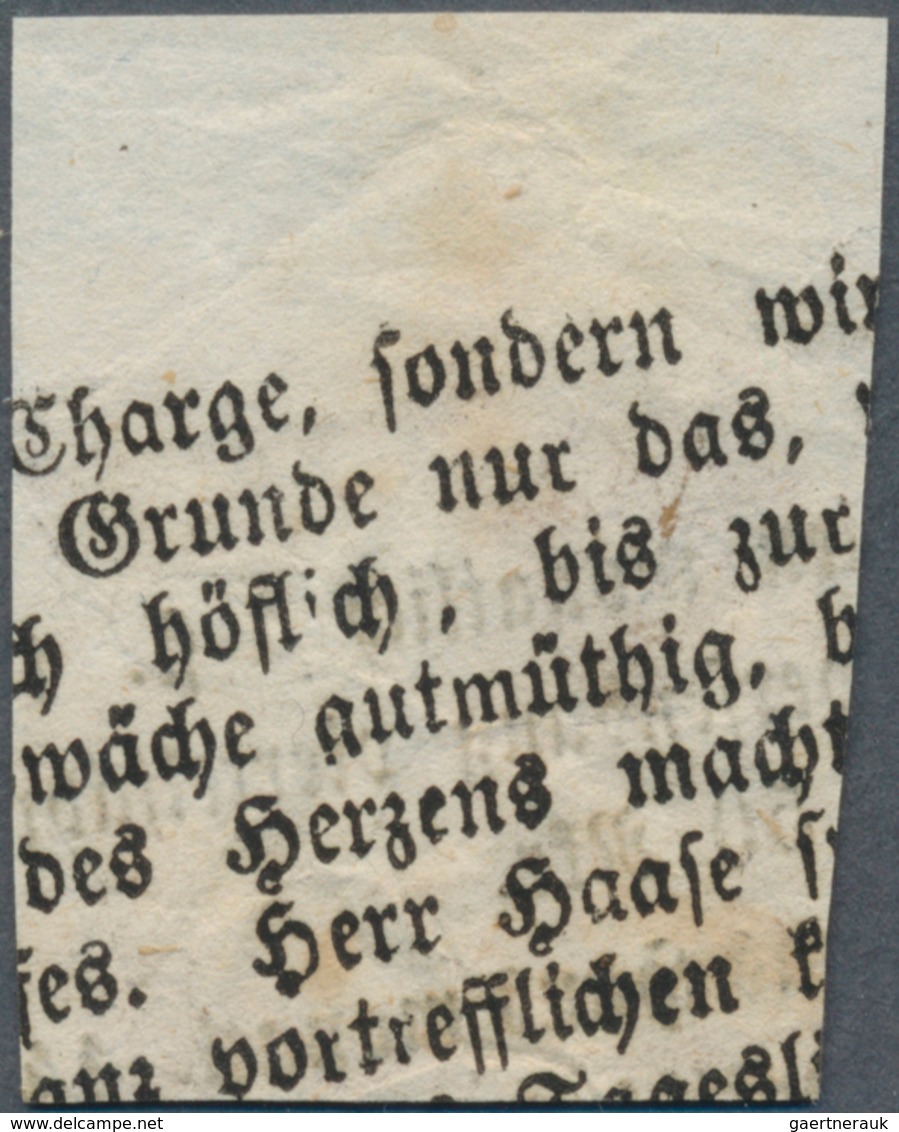 Charge, sondern wir
Grunde nur das,
ch höflich, bis zur
wäche gutmüthig, b
des Herzens macht
ses. Herr Haase s
anz vortrefflichen k
Tagesli
www.delcampe.net
gaertnerauk